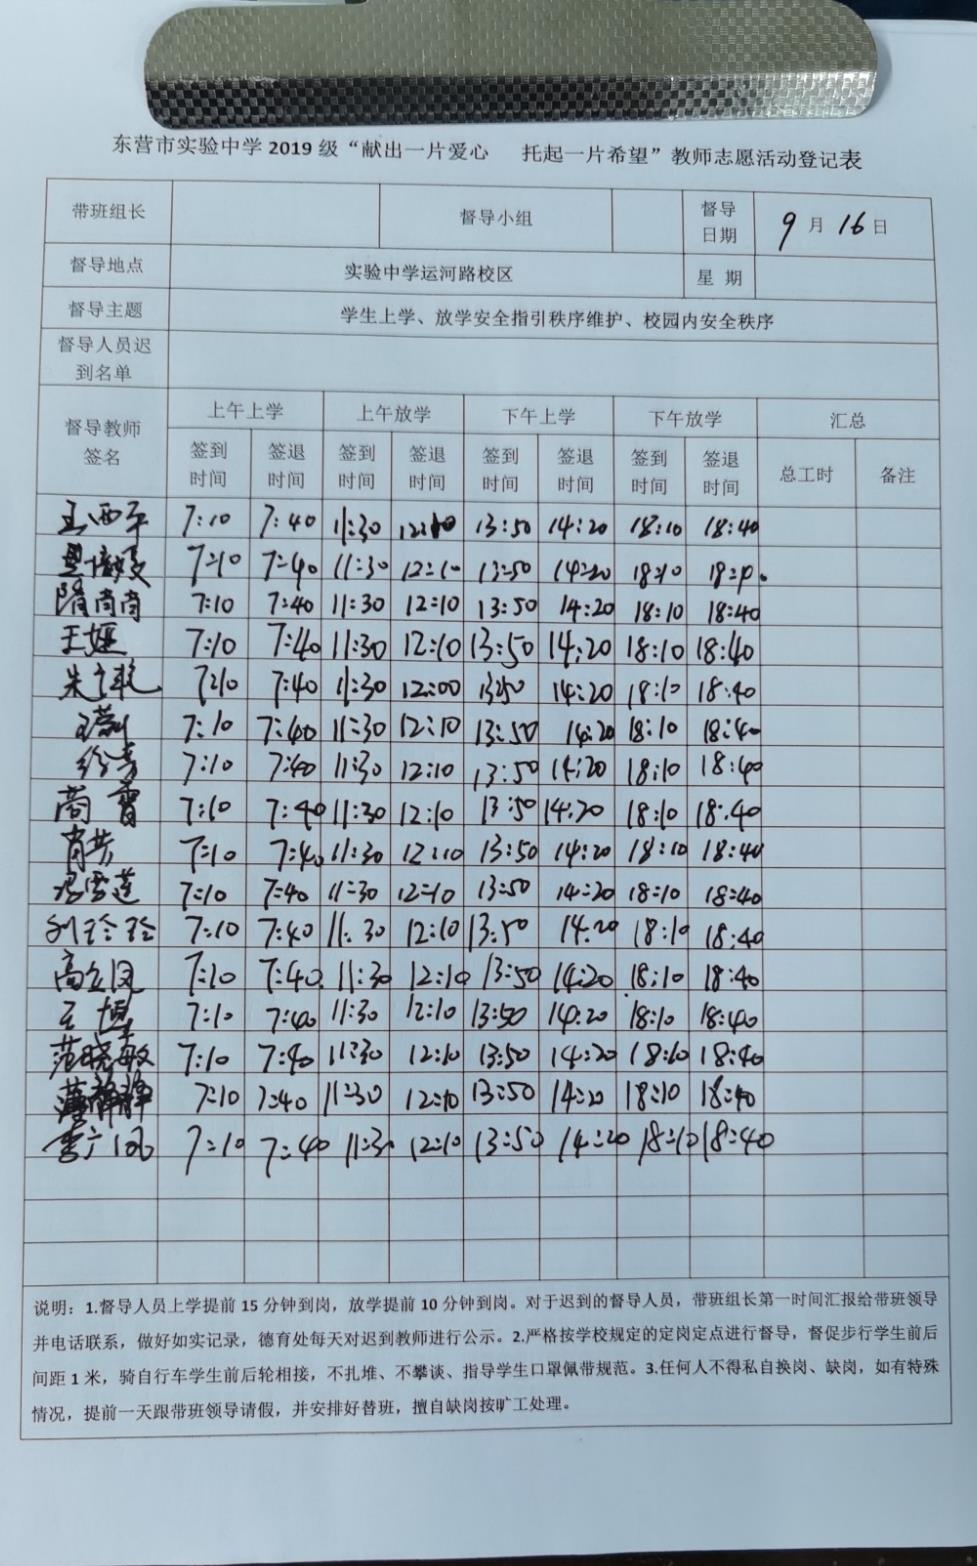 东营市实验中学 2019 级“献出一片爱心 托起一片希望”教师志愿活动登记表
带班组长 督导小组 督导日期 9月16日
督导地点 实验中学运河路校区 星 期
督导主题 学生上学、放学安全指引秩序维护、校园内安全秩序
督导人员迟到名单
督导教师签名 上午上学 上午放学 下午上学 下午放学 汇总
签到时间 签退时间 签到时间 签退时间 签到时间 签退时间 签到时间 签退时间 总工时 备注
王西平 7:10 7:40 11:30 12:10 13:50 14:20 18:10 18:40
7:10 7:40 11:30 12:10 13:50 14:20 18:10
隋尚尚 7:10 7:40 11:30 12:10 13:50 14:20 18:10 18:40
王娅 7:10 7:40 11:30 12:10 13:50 14:20 18:10 18:40
朱 7:10 7:40 11:30 12:00 13:50 14:20 18:10 18:40
7:10 7:40 11:30 12:10 13:50 14:20 18:10 18:40
徐芳 7:10 7:40 11:30 12:10 13:50 14:20 18:10 18:40
商霄 7:10 7:40 11:30 12:10 13:50 14:20 18:10 18:40
肖芳 7:10 7:40 11:30 12:10 13:50 14:20 18:10 18:40
雪莲 7:10 7:40 11:30 12:10 13:50 14:20 18:10 18:40
刘玲玲 7:10 7:40 11:30 12:10 13:50 14:20 18:10 18:40
高立凤 7:10 7:40 11:30 12:10 13:50 14:20 18:10 18:40
王博 7:10 7:40 11:30 12:10 13:50 14:20 18:10 18:40
范晓敏 7:10 7:40 11:30 12:10 13:50 14:20 18:10 18:40
7:10 7:40 11:30 12:10 13:50 14:20 18:10 18:40
李广凤 7:10 7:40 11:30 12:10 13:50 14:20 18:10 18:40
说明：1.督导人员上学提前 15 分钟到岗，放学提前 10 分钟到岗。对于迟到的督导人员，带班组长第一时间汇报给带班领导
并电话联系，做好如实记录，德育处每天对迟到教师进行公示。2.严格按学校规定的定岗定点进行督导，督促步行学生前后
间距 1 米，骑自行车学生前后轮相接，不扎堆、不攀谈、指导学生口罩佩带规范。3.任何人不得私自换岗、缺岗，如有特殊
情况，提前一天跟带班领导请假，并安排好替班，擅自缺岗按旷工处理。